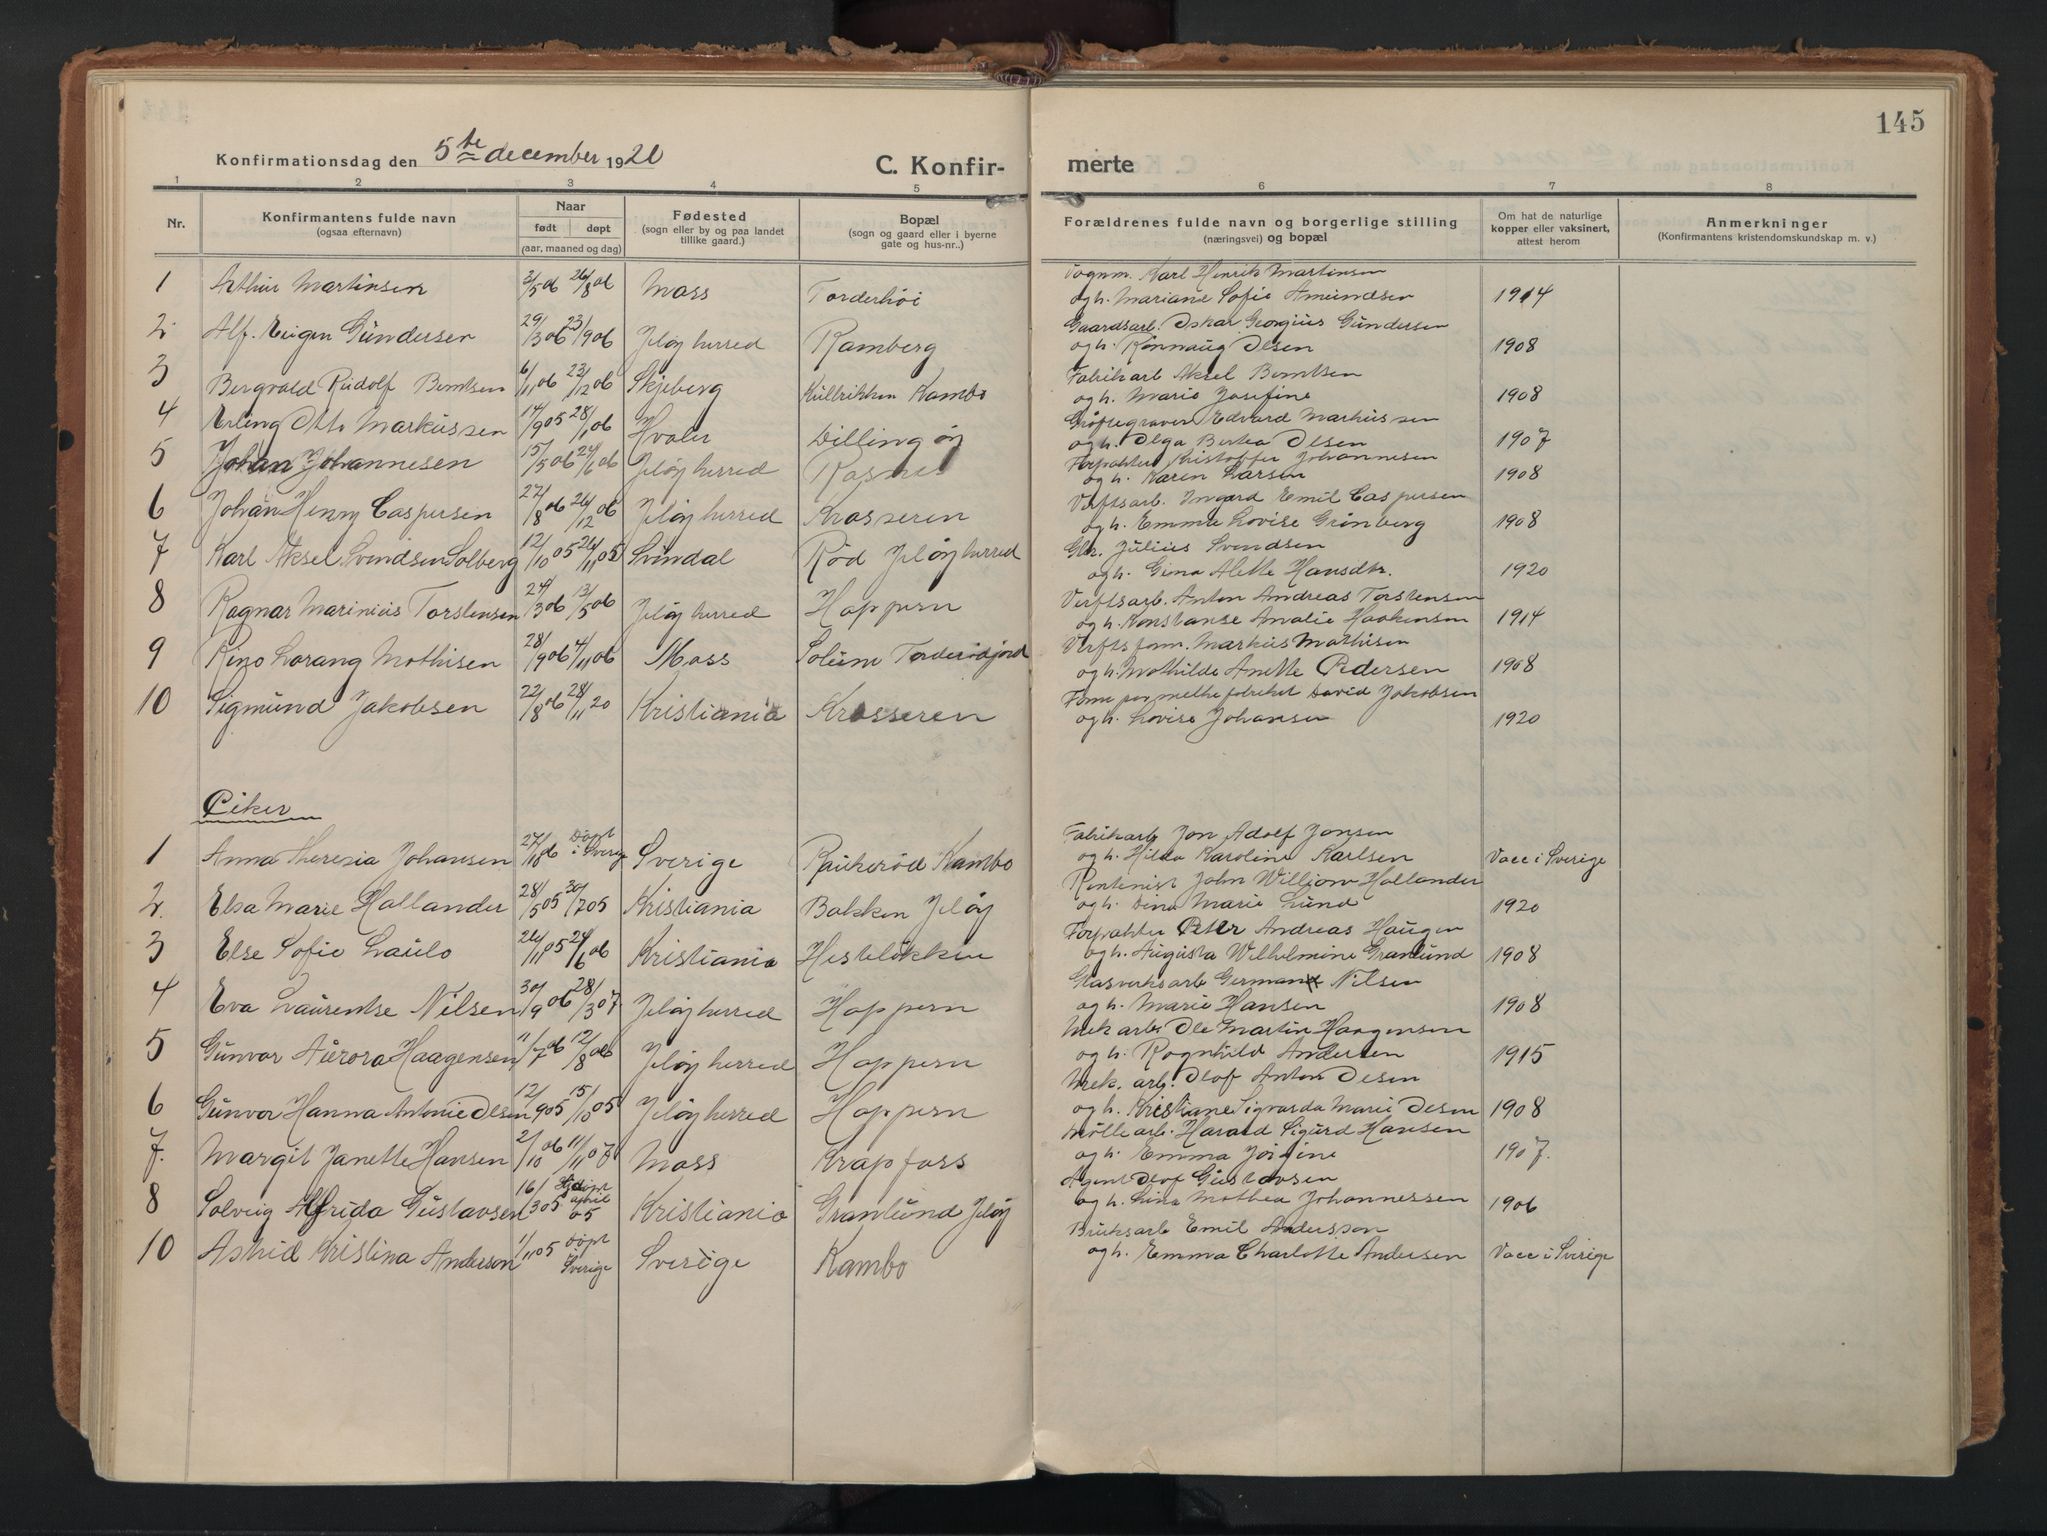 145
Konfirmationsdag den 5te december 1920
C. Konfir-
merte
1 2 3 4 5 6 7 8
Nr.
Konfirmantens fulde navn
(ogsaa efternavn)
Naar
født døpt
(aar, maaned og dag)
Fødested
(sogn eller by og paa landet
tillike gaard.)
Bopæl
(sogn og gaard eller i byerne
gate og hus-nr.)
Forældrenes fulde navn og borgerlige stilling
(næringsvei) og bopæl
Om hat de naturlige
kopper eller vaksinert,
attest herom
Anmerkninger
(Konfirmantens kristendomskundskap m. v.)
1 Arthur Martinsen 2/5 06 26/8 06 Moss Torderhøi Vognm. Karl Henrik Martinsen
og h. Mariane Sofie Amundsen 1914
2. Alf. Eugen Gundersen 29/3 06 23/9 06 Jeløy herred Ramberg Gaardsarb. Oskar Georgius Gundersen
og h. Rønnaug Olsen 1908
3 Bergvald Rudolf Berntsen 6/11 06 23/12 06 Skjeberg Kullrikken Kambo Fabrikarb Aksel Berntsen
og h. Marie Josefine 1908
4 Erling Otto Markussen 14/9 05 28/1 06 Hvaler Dillingøy Grøftegraver Edvard Markussen
og h. Olga Bertea Olsen 1907
5 Johan Johannesen 15/5 06 24/6 06 Jeløy herred Forpakter Kristoffer Johannesen
og h. Karen Larsen 1908
6 Johan Henry Caspersen 27/8 06 26/12 06 Jeløy herred Krosseren Verftsarb. Ingard Emil Caspersen
og h. Emma Lovise Grønberg 1908
7 Karl Aksel Svendsen Solberg 12/10 05 26/11 05 Svindal Rød Jeløy herred Julius Svendsen
og h. Gina Alette Hansdtr. 1920
8 Ragnar Marinius Torstensen 24/3 06 13/5 06 Jeløy herred Hoppern Verftsarb. Anton Andreas Torstensen
og h. Konstanse Amalie Haakensen 1914
9 Rino Lorang Mathisen 28/9 06 4/11 06 Moss Solum Torderødjord Verftsform. Markus Mathisen
og h. Mathilde Anette Pedersen 1908
10 Sigmund Jakobsen 22/8 06 28/11 20 Kristiania Krosseren David Jakobsen
og h. Lovise Johansen 1920
Piker
1 Anna Theresia Johansen 27/8 06 Døpt
i Sverig Sverige Raukerød Kambo Fabrikarb Jon Adolf Jonsen
og h. Hilda Karoline Karlsen Vacc i Sverige
2. Elsa Marie Hollander 28/5 05 30/7 05 Kristiania Bakken Jeløy Rentenist John William Hollander
og h. Dina Marie Lund 1920
3 Else Sofie Laulo 26/11 05 24/6 06 Kristiania Hesteløkken Forpakter Peter Andreas Haugen
og h. Augusta Wilhelmine Granlund 1908
4 Eva Laurentse Nilsen 30/9 06 28/3 07 Jeløy herred Hoppern Glasverksarb German Nilsen
og h. Marie Hansen 1908
5 Gunvor Aurora Haagensen 11/7 06 12/8 06 Jeløy herred Hoppern Mek arb. Ole Martin Haagensen
og h. Ragnhild Andersen 1915
6 Gunvor Hanna Antonie Olsen 12/9 05 15/10 05 Jeløy herred Hoppern Mek. arb. Olof Anton Olsen
og h. Kristiane Sigvarda Marie Olsen 1908
7. Margit Janette Hansen 2/10 06 11/11 07 Moss Krapfoss Mølle arb. Harald Sigurd Hansen
og h. Emma Jorgine 1907.
8 Solveig Alfrida Gustavsen 16/3 05 døpt
april
05 Kristiania Granlund Jeløy Agent Olof Gustavsen
og h. Lina Mathea Johannessen 1906
10 Astrid Kristina Anderson 11/11 05 Døpt
Sverige Sverige Kambo Bruksarb Emil Andersson
og h. Emma Charlotte Andersen Vacc i Sverige